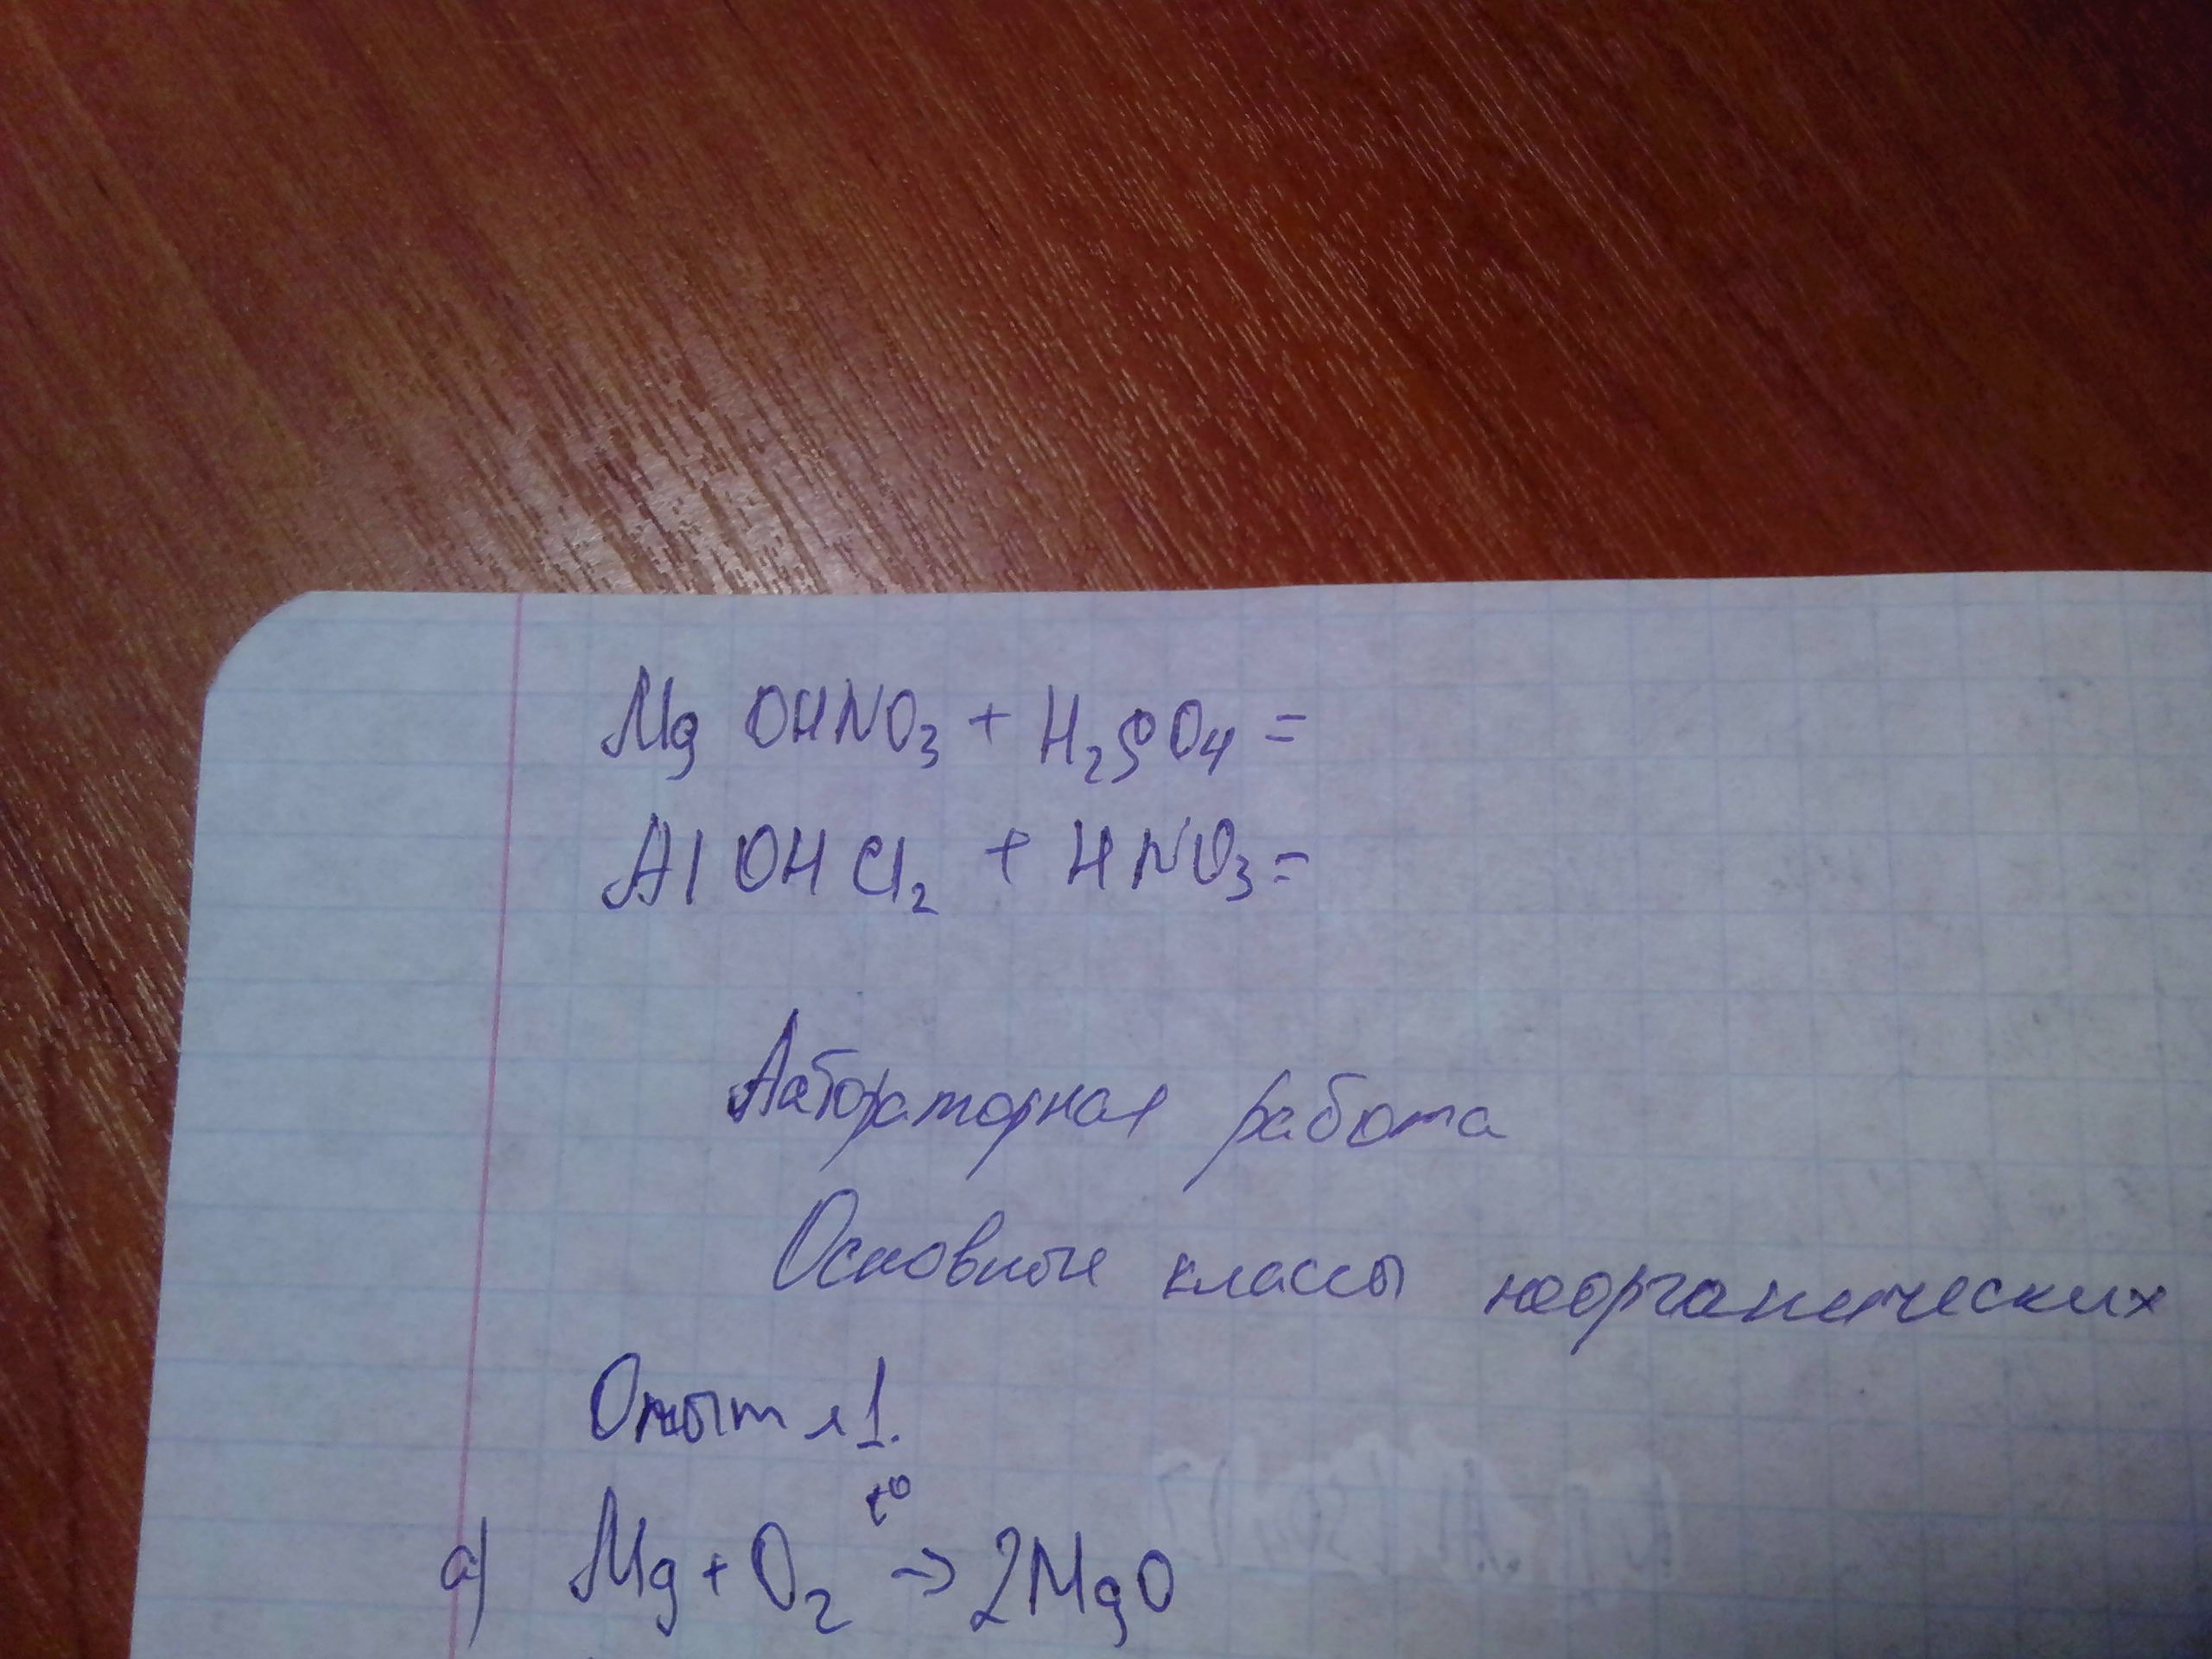 Mg OHNO₃ + H₂SO₄ =
Al OH Cl₂ + HNO₃ =
Лабораторная работа
Основные классы неорганических
Опыт №1.
t°
а) Mg + O₂ → 2MgO